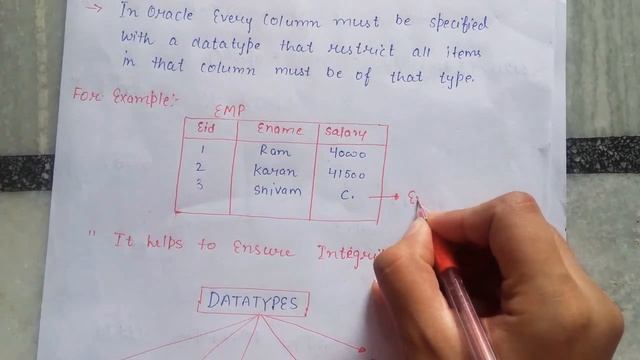 → In Oracle Every Column must be specified
with a datatype that restrict all items
in that column must be of that type.
For Example:-
EMP
Eid Ename Salary
1 Ram 40000
2 Karan 41500
3 Shivam C. →
" It helps to Ensure
DATATYPES